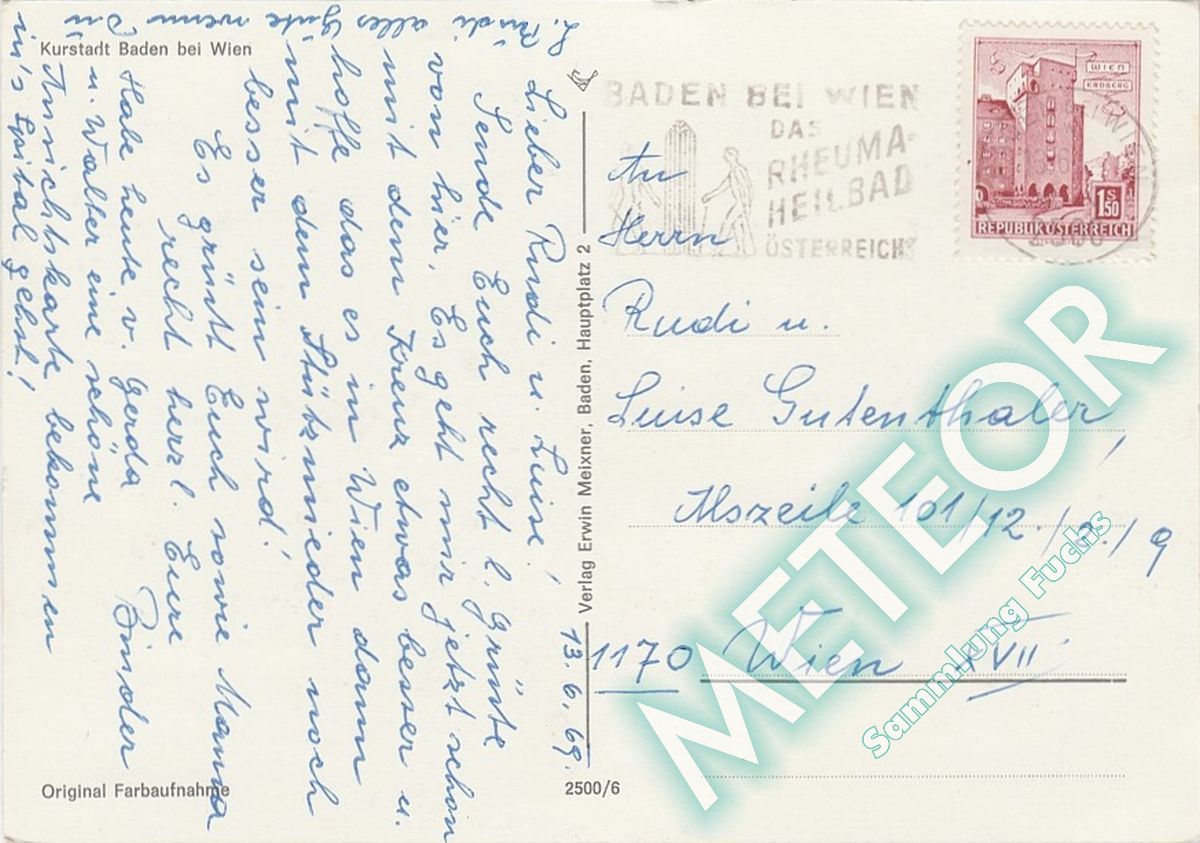 Kurstadt Baden bei Wien
13.6.69.
Lieber Rudi u. Luise!
Sende Euch recht l. Grüße
von hier. Es geht mir jetzt schon
mit dem Kreuz etwas besser u.
hoffe das es in Wien dann
mit dem Stützmieder noch
besser sein wird!
Es grüßt Euch sowie Mama
recht herzl. Eure
Binder
Habe heute v. Gerda
u. Walter eine schöne
Ansichtskarte bekommen
L. Rudi
alles Gute wenn Du
in's Spital gehst!
Original Farbaufnahme
Verlag Erwin Meixner, Baden, Hauptplatz 2
2500/6
BADEN BEI WIEN
DAS
RHEUMA-
HEILBAD
ÖSTERREICHS
WIEN
ERDBERG
S
1.50
REPUBLIK ÖSTERREICH
An
Herrn
Rudi u.
Luise Gutenthaler,
Alszeile 101/12./2./9
1170 Wien XVII
METEOR
Sammlung Fuchs